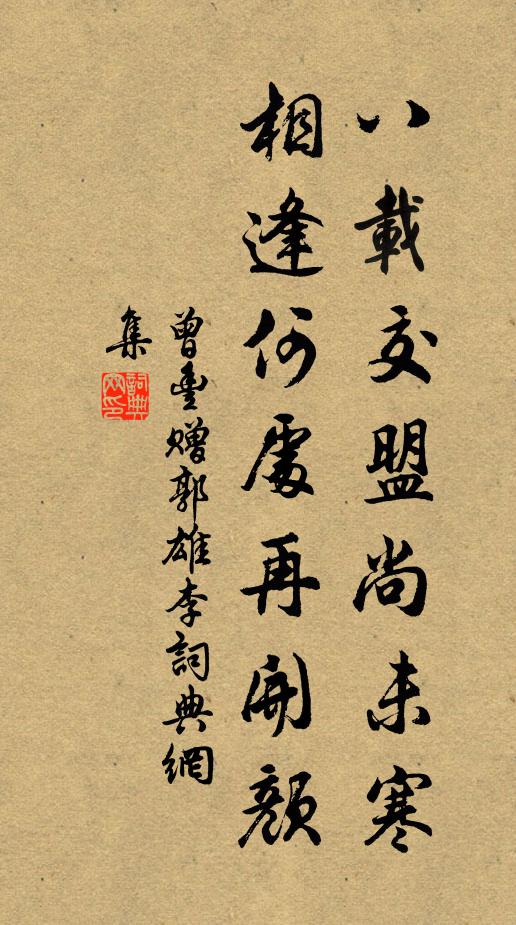 八載交盟尚未寒
相逢何處再開顏
曾豐贈郭雄李詞典網
集
詞典網印